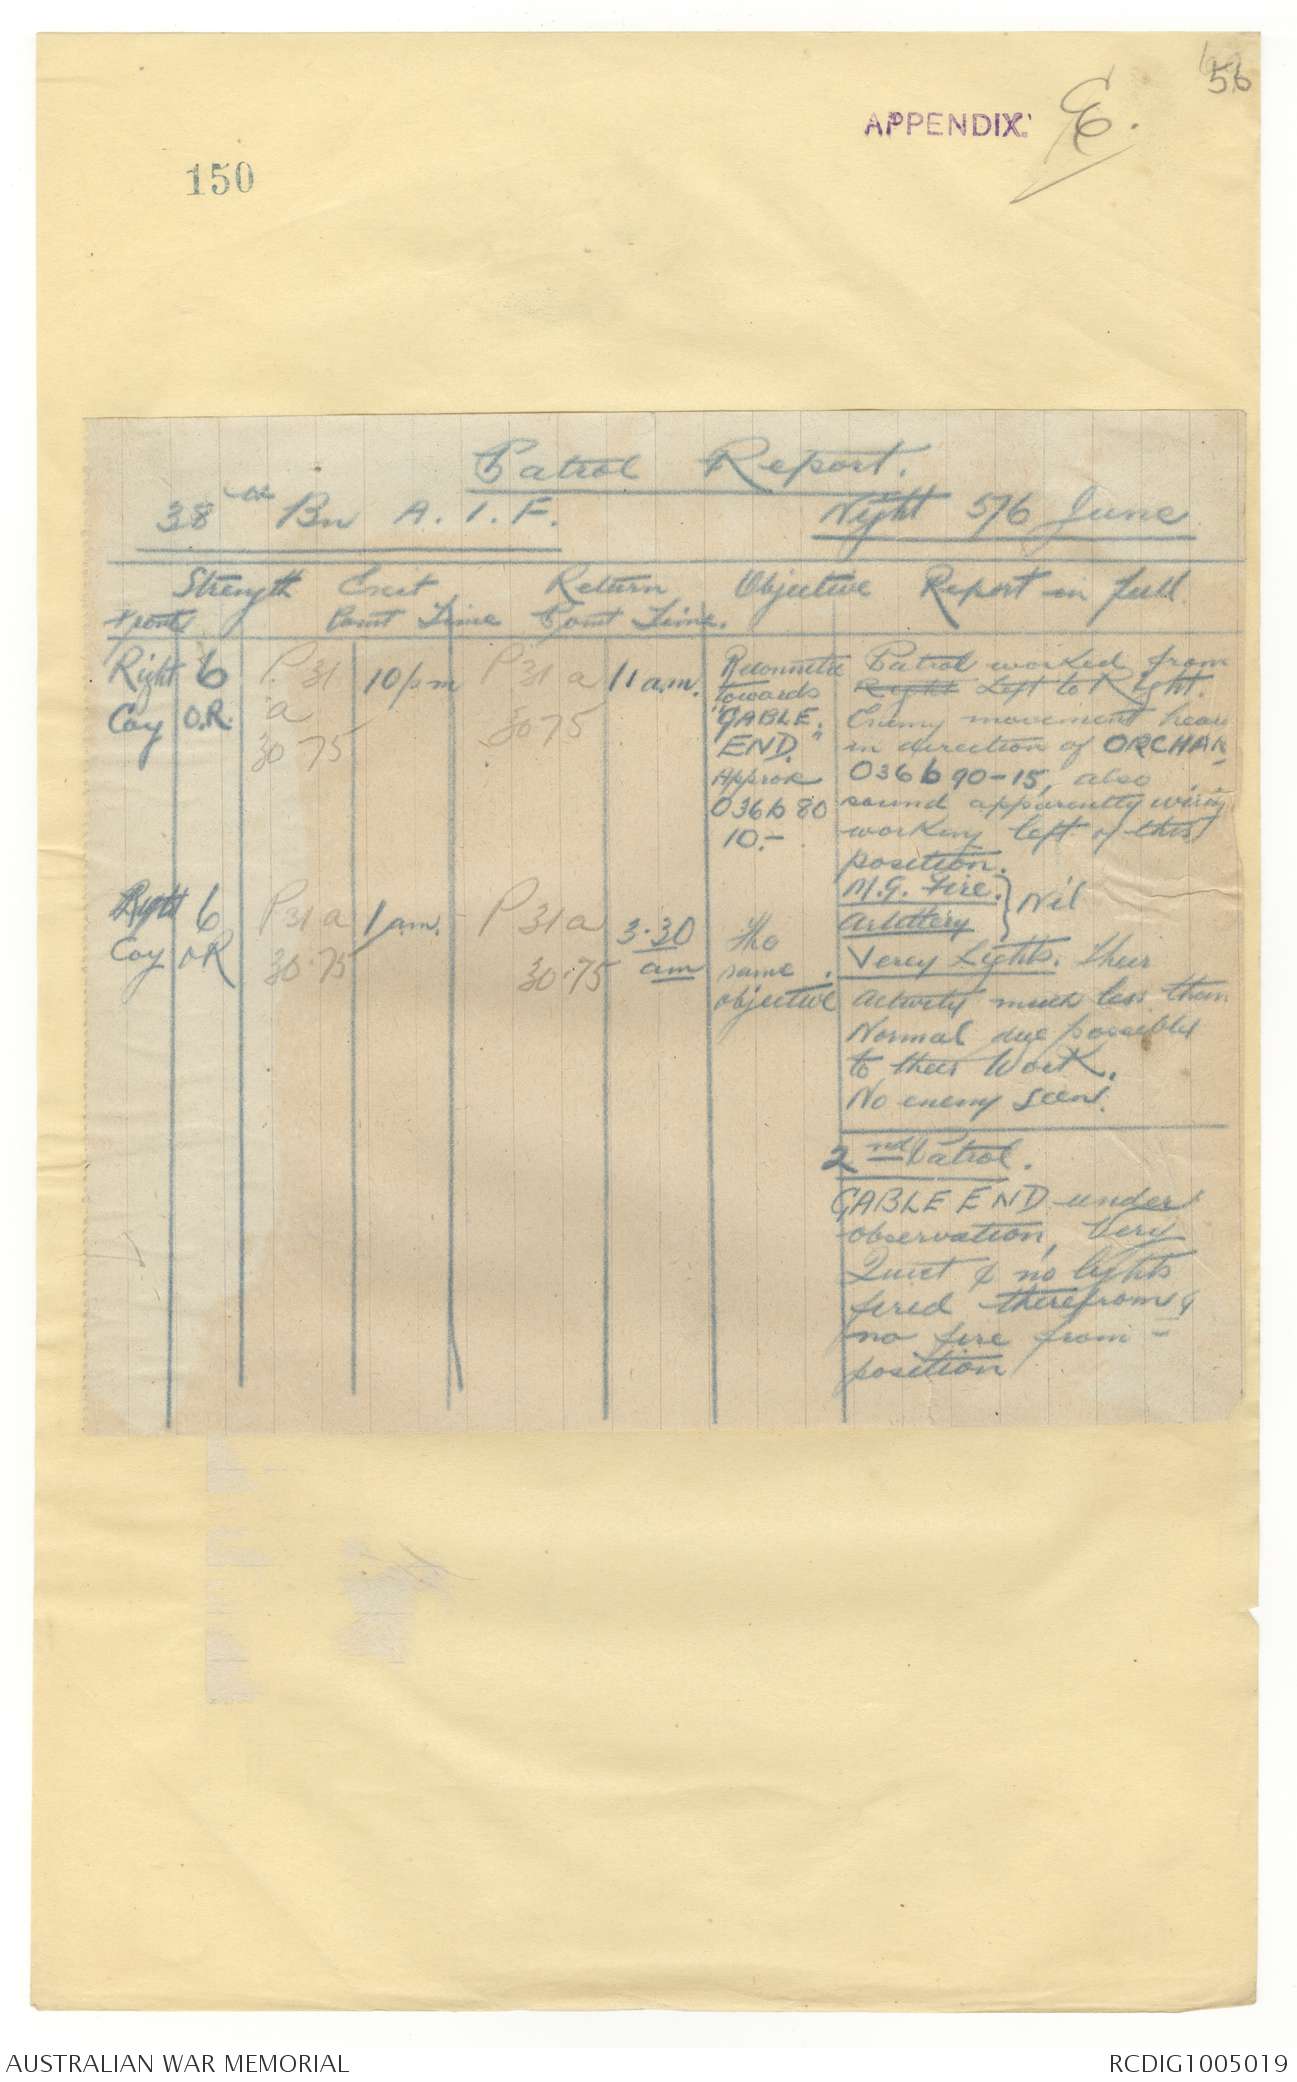 56
APPENDIX. E.
150
Patrol Report.
38th Bn A.I.F. Night 5/6 June
Strength Exit Return Objective Report in full
Front Point Time Point Time.
Right Coy
6 O.R.
P.31 a 30 75
10 pm
P31 a 30 75
11 a.m.
Reconnoitre
towards
"GABLE.
END."
Approx
O36b 80
10.-
Patrol worked from
Right Left to Right.
Enemy movement hear
in direction of ORCHAR
O36b 90-15, also
sound apparently wiring
working left of this
position.
M.G. Fire. } Nil
Artillery
Verey Lights. Their
activity much less than
Normal due possibly
to their work.
No enemy seen.
Right Coy
6 OR
P31a 30.75
1 a.m.
P31a 30.75
3.30 am
The
same
objective
2nd Patrol.
GABLE END under
observation, Very
Quiet & no lights
fired therefrom &
no fire from -
position
AUSTRALIAN WAR MEMORIAL
RCDIG1005019